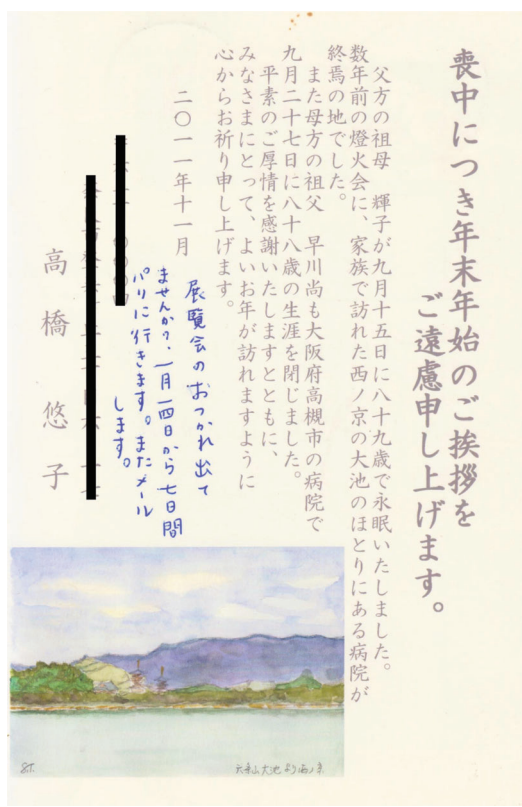 喪中につき年末年始のご挨拶を
ご遠慮申し上げます。
父方の祖母　輝子が九月十五日に八十九歳で永眠いたしました。
数年前の燈火会に、家族で訪れた西ノ京の大池のほとりにある病院が
終焉の地でした。
また母方の祖父　早川尚も大阪府高槻市の病院で
九月二十七日に八十八歳の生涯を閉じました。
平素のご厚情を感謝いたしますとともに、
みなさまにとって、よいお年が訪れますように
心からお祈り申し上げます。
二〇一一年十一月
展覧会のおつかれ出て
ませんか？一月一四日から七日間
パリに行きます。またメール
します。
高橋　悠子
大池より西ノ京
S.T.